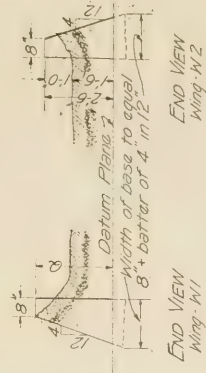 8"
4
12
1'-0"
1'-6"
2'-6"
Datum Plane
Width of base to equal
8" + batter of 4" in 12"
END VIEW
Wing-W2
8"
4
12
END VIEW
Wing-W1